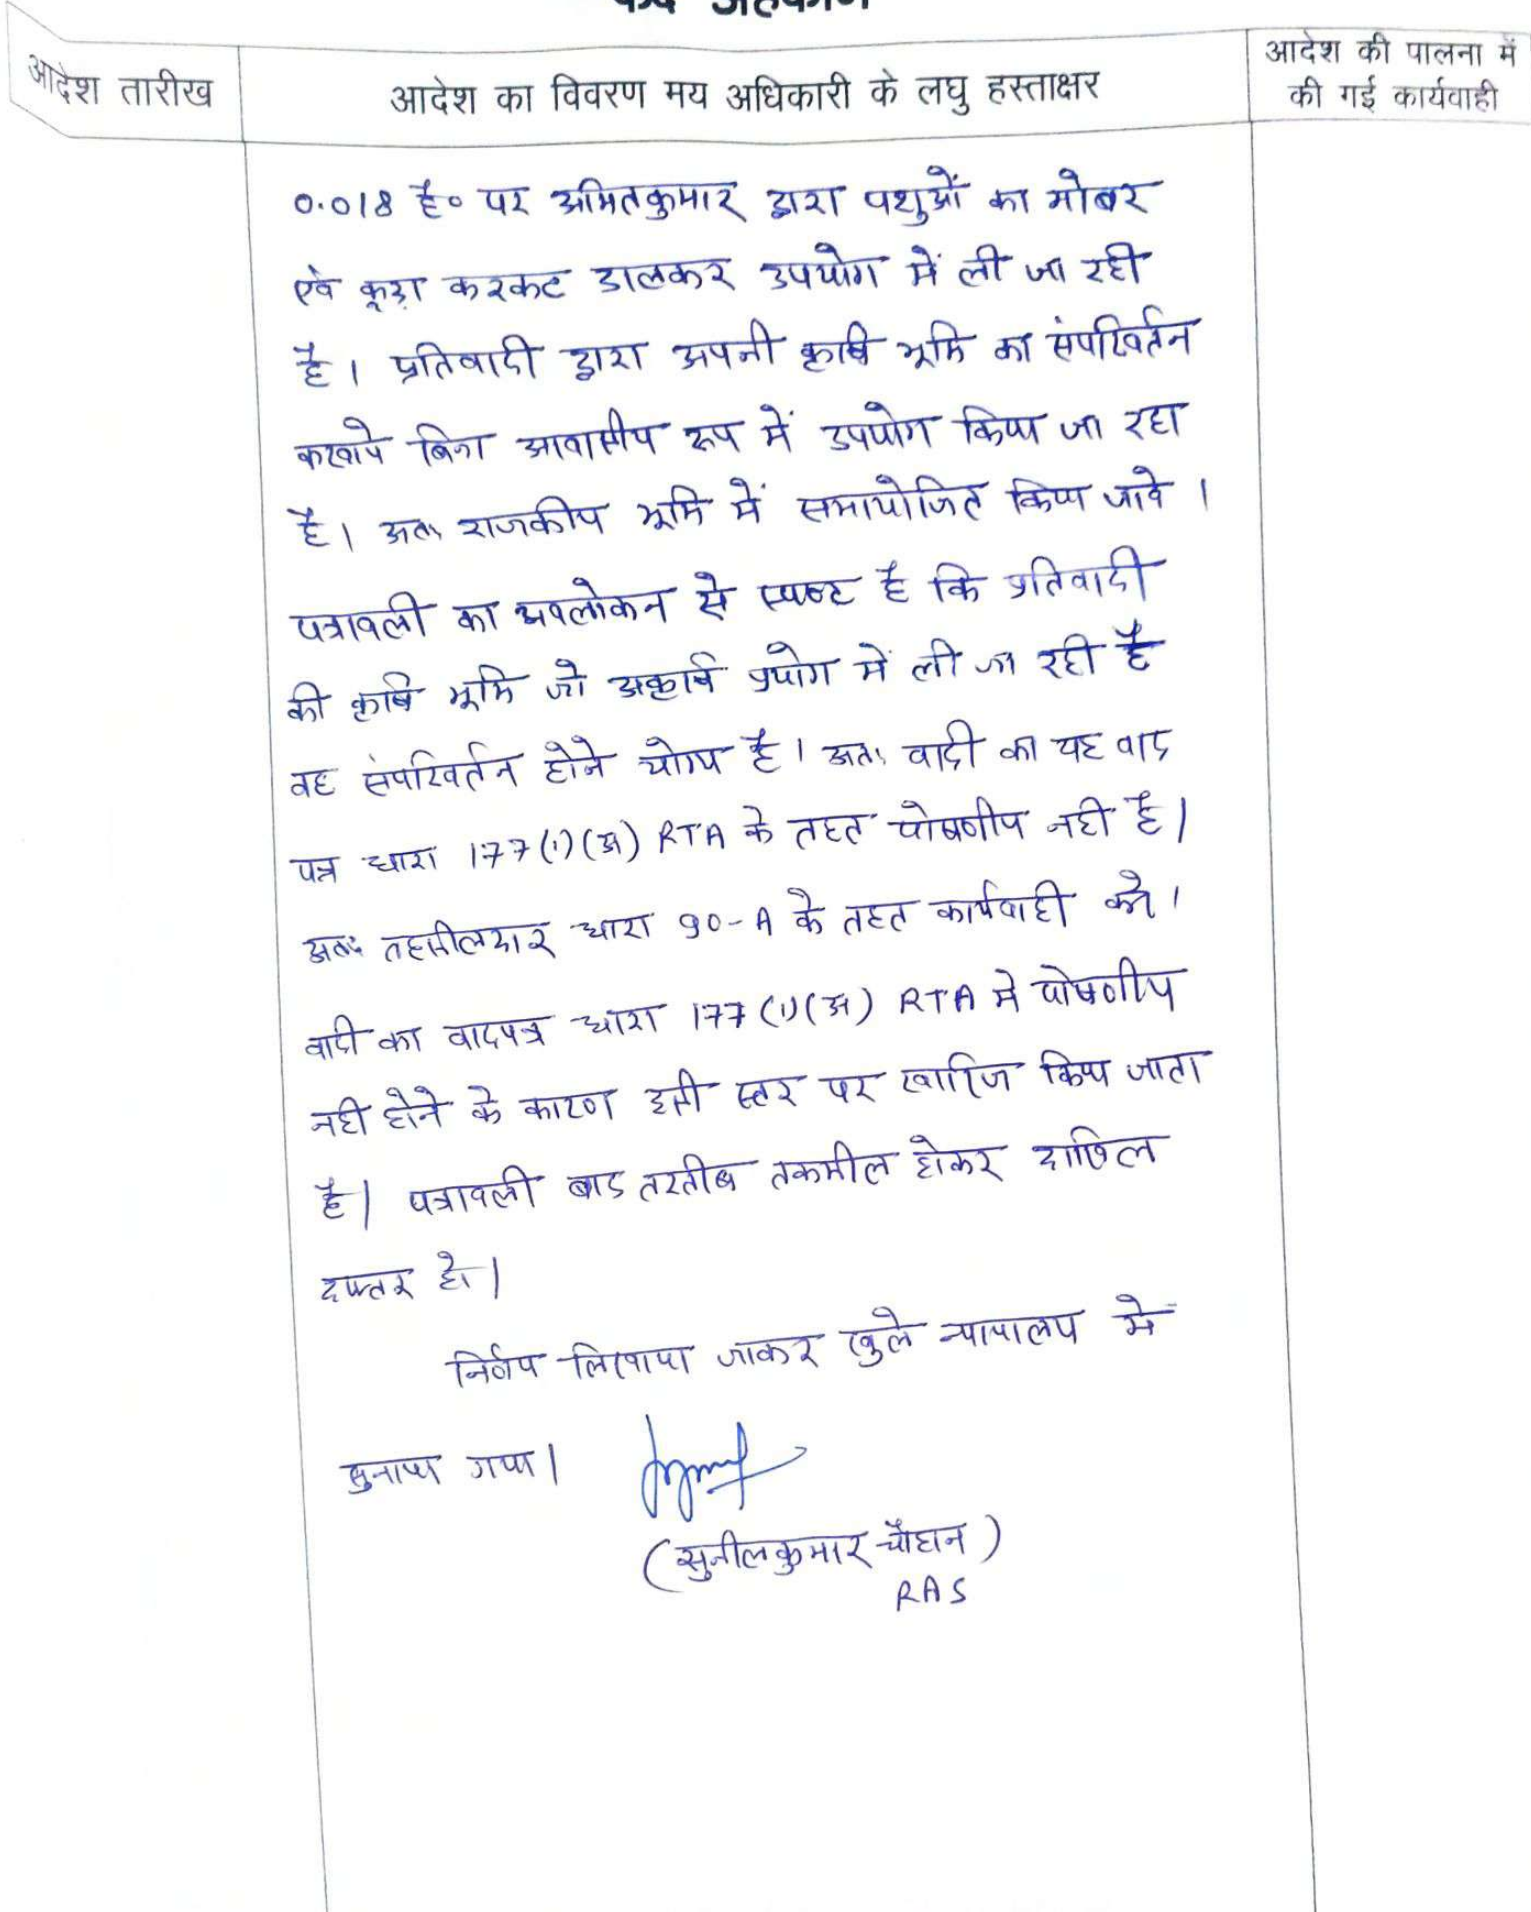 आदेश तारीख
आदेश का विवरण मय अधिकारी के लघु हस्ताक्षर
आदेश की पालना में
की गई कार्यवाही
0.018 है० पर अमितकुमार द्वारा पशुओं का गोबर
एवं कूड़ा करकट डालकर उपयोग में ली जा रही
है। प्रतिवादी द्वारा अपनी कृषि भूमि का संपरिवर्तन
करवाये बिना आवासीय रूप में उपयोग किया जा रहा
है। अतः राजकीय भूमि में समायोजित किया जावे।
पत्रावली का अवलोकन से स्पष्ट है कि प्रतिवादी
की कृषि भूमि जो अकृषि प्रयोग में ली जा रही है
वह संपरिवर्तन होने योग्य है। अतः वादी का यह वाद
पत्र धारा 177(1)(अ) RTA के तहत पोषणीय नही है।
अतः तहसीलदार धारा 90-A के तहत कार्यवाही करे।
वादी का वादपत्र धारा 177(1)(अ) RTA मे पोषणीय
नही होने के कारण इसी स्तर पर खारिज किया जाता
है। पत्रावली बाद तरतीब तकमील होकर दाखिल
दफ्तर हो।
निर्णय लिखाया जाकर खुले न्यायालय मे
सुनाया गया।
(सुनीलकुमार चौहान)
RAS